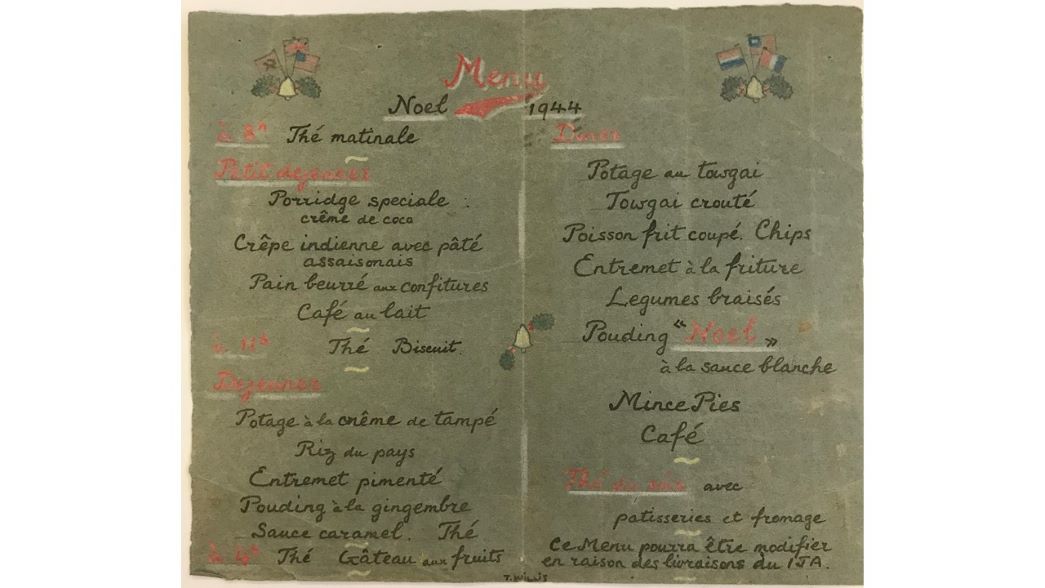 Menu
Noel 1944
à 8h Thé matinale
Petit dejeuner
Porridge speciale :
crême de coco
Crêpe indienne avec pâté
assaisonais
Pain beurré aux confitures
Café au lait
à 11h Thé Biscuit.
Dejeuner
Potage à la crême de tampé
Riz du pays
Entremet pimenté
Pouding à la gingembre
Sauce caramel. Thé
à 4h Thé Gâteau aux fruits
Diner
Potage au towgai
Towgai crouté
Poisson frit coupé. Chips
Entremet à la friture
Legumes braisés
Pouding "Noel"
à la sauce blanche
Mince Pies
Café
Thé du soir avec
patisseries et fromage
Ce Menu pourra être modifier
en raison des livraisons du IJA.
T. Willis